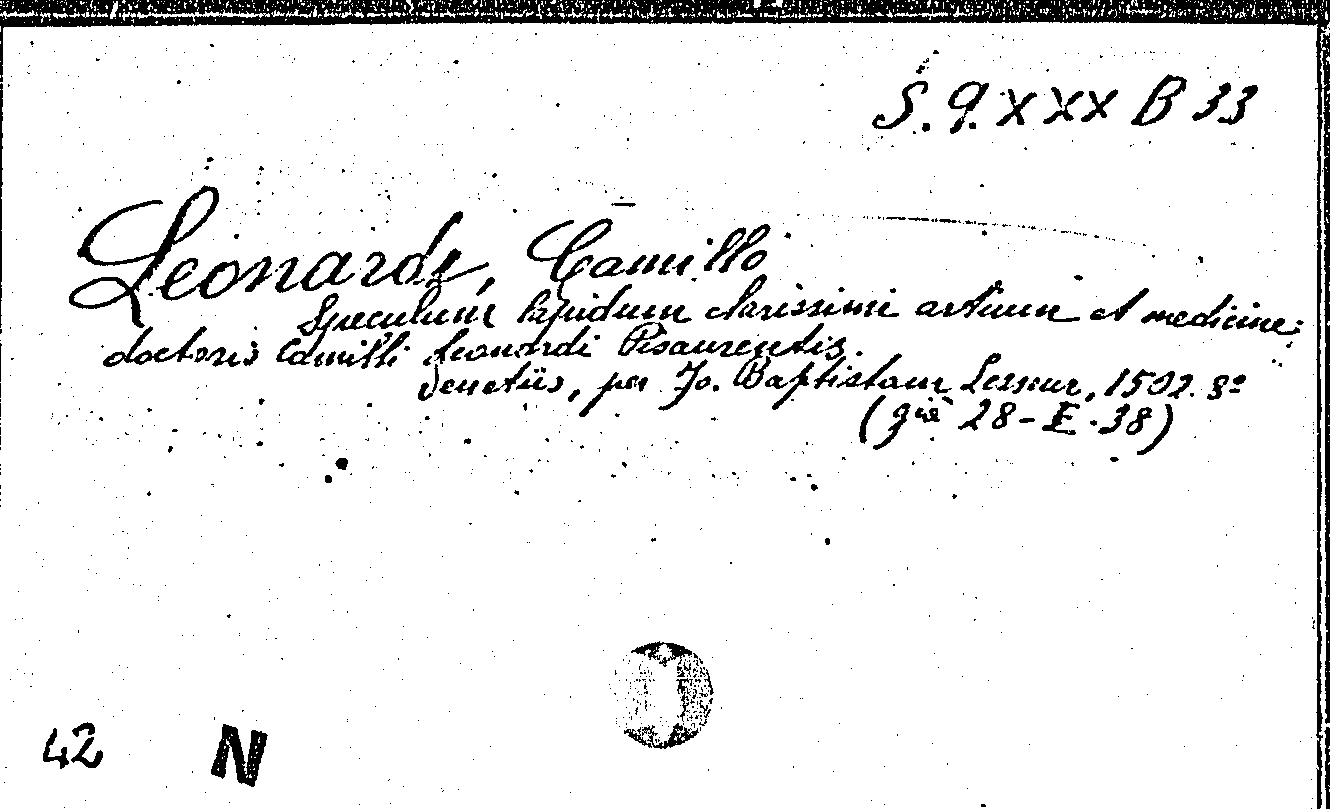 S. Q. XXX B 33
Leonardi, Camillo
Speculum lapidum clarissimi artium et medicine
doctoris Camilli Leonardi Pisaurentis.
Venetiis, per Jo. Baptistam Sessam, 1502. 8º
(già 28-E-38)
42 N